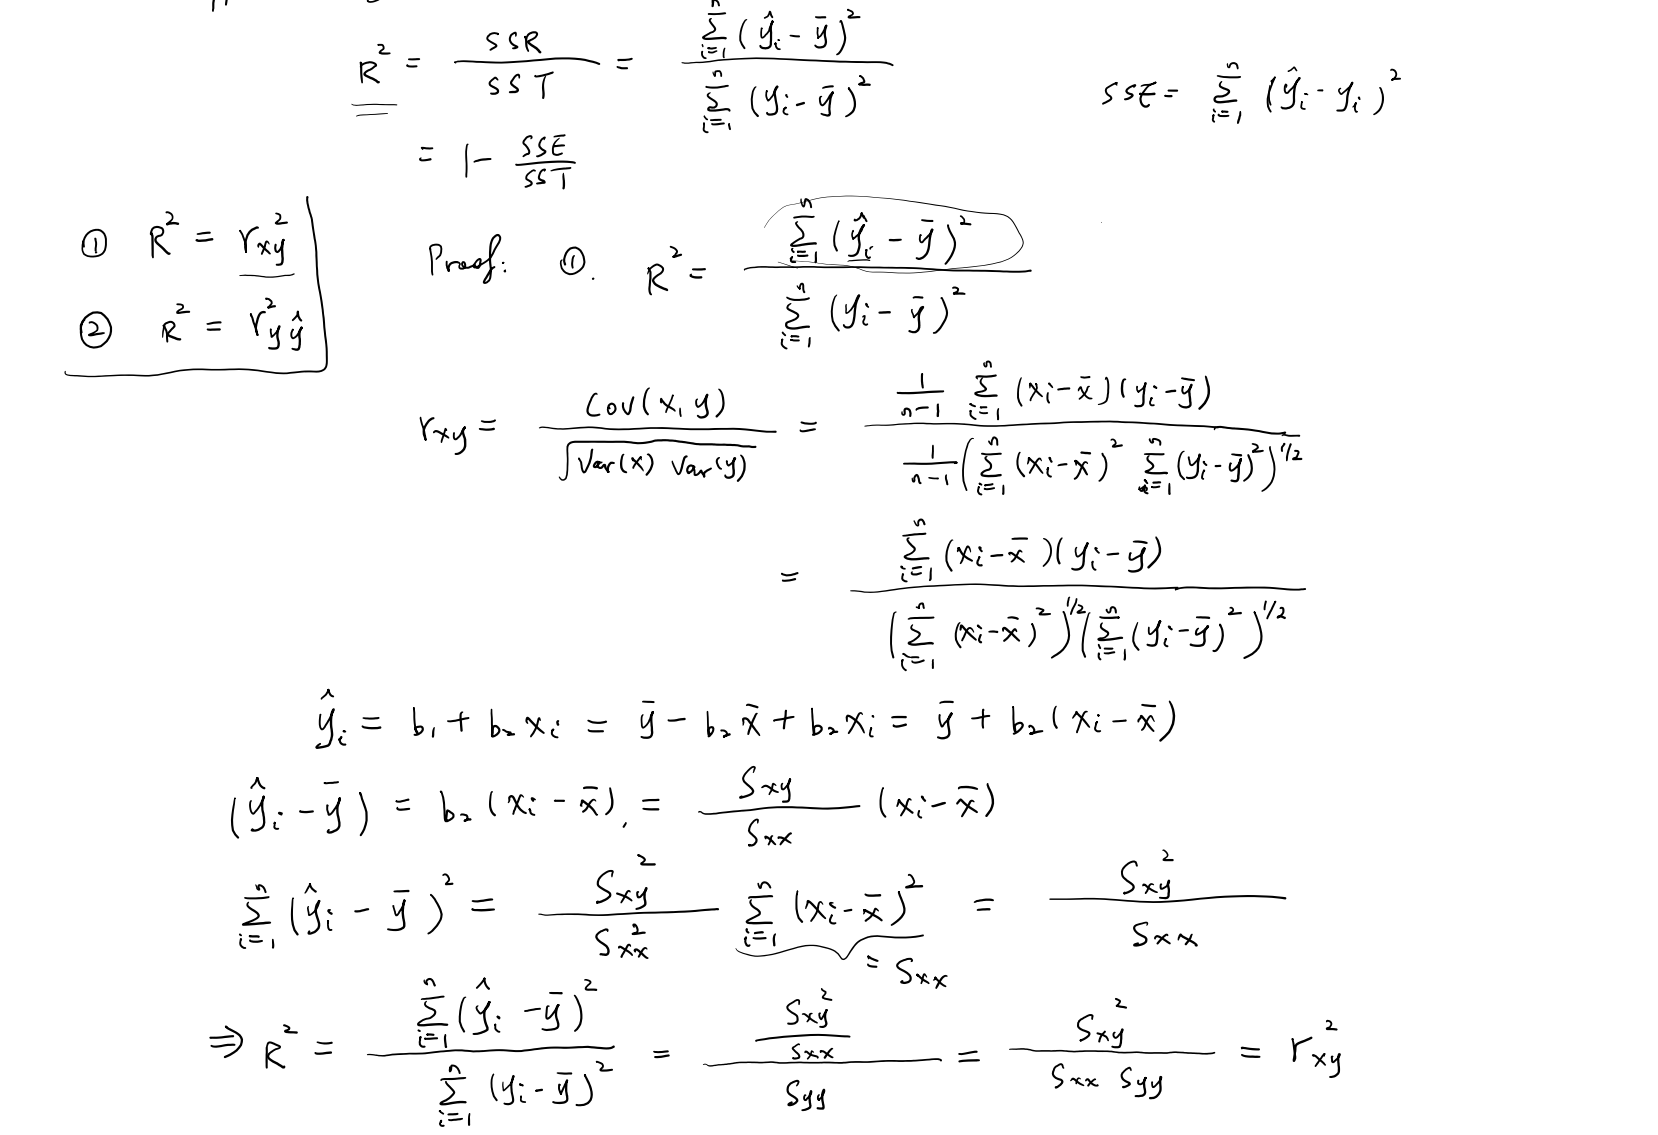 R² = SSR / SST = Σ_{i=1}^{n} (ŷᵢ - ȳ)² / Σ_{i=1}^{n} (yᵢ - ȳ)²
SSE = Σ_{i=1}^{n} (ŷᵢ - yᵢ)²
= 1 - SSE / SST
① R² = r²_{xy}
② R² = r²_{yŷ}
Proof: ①. R² = Σ_{i=1}^{n} (ŷᵢ - ȳ)² / Σ_{i=1}^{n} (yᵢ - ȳ)²
r_{xy} = Cov(x, y) / √(Var(x) Var(y)) = 1/(n-1) Σ_{i=1}^{n} (xᵢ - x̄)(yᵢ - ȳ) / 1/(n-1) (Σ_{i=1}^{n} (xᵢ - x̄)² Σ_{i=1}^{n} (yᵢ - ȳ)²)^{1/2}
= Σ_{i=1}^{n} (xᵢ - x̄)(yᵢ - ȳ) / (Σ_{i=1}^{n} (xᵢ - x̄)²)^{1/2} (Σ_{i=1}^{n} (yᵢ - ȳ)²)^{1/2}
ŷᵢ = b₁ + b₂xᵢ = ȳ - b₂x̄ + b₂xᵢ = ȳ + b₂(xᵢ - x̄)
(ŷᵢ - ȳ) = b₂(xᵢ - x̄), = S_{xy} / S_{xx} (xᵢ - x̄)
Σ_{i=1}^{n} (ŷᵢ - ȳ)² = S_{xy}² / S_{xx}² Σ_{i=1}^{n} (xᵢ - x̄)² = S_{xy}² / S_{xx}
= S_{xx}
⇒ R² = Σ_{i=1}^{n} (ŷᵢ - ȳ)² / Σ_{i=1}^{n} (yᵢ - ȳ)² = (S_{xy}² / S_{xx}) / S_{yy} = S_{xy}² / S_{xx} S_{yy} = r²_{xy}